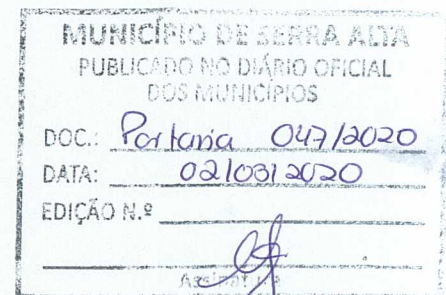 MUNICÍPIO DE SERRA ALTA
PUBLICADO NO DIÁRIO OFICIAL
DOS MUNICÍPIOS
DOC.: Portaria 047/2020
DATA: 02/03/2020
EDIÇÃO N.º
Assinatura